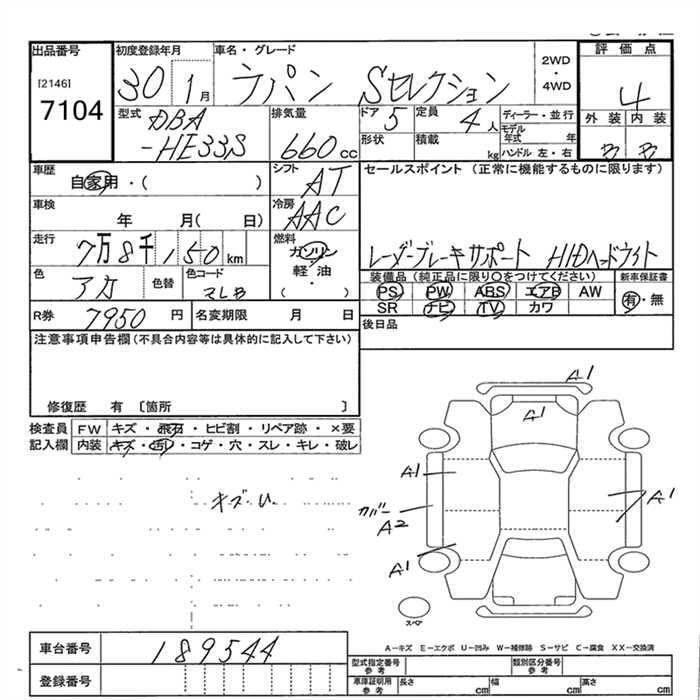 出品番号
[2146]
7104
初度登録年月
30 1月
車名・グレード
ラパン Sセレクション
2WD
・
4WD
評価点
4
外装 内装
B B
型式
DBA
-HE33S
排気量
660cc
ドア 5
定員 4人
形状
積載 kg
ディーラー・並行
モデル年式 年
ハンドル 左・右
車歴
自家用・( )
シフト
AT
セールスポイント (正常に機能するものに限ります)
レーダーブレーキサポート HIDヘッドライト
車検
年 月( 日)
冷房
AAC
走行
7万8千150km
燃料
ガソリン
軽油
・
( )
色
アカ
色替
色コード
装備品(純正品に限り○をつけてください)
PS PW ABS エアB AW
SR ナビ TV カワ
新車保証書
有・無
R券
7950円
名変期限 月 日
後日品
注意事項申告欄(不具合内容等は具体的に記入して下さい)
修復歴 有 [箇所 ]
検査員 FW キズ・飛石・ヒビ割・リペア跡・×要
記入欄 内装 キズ・汚・コゲ・穴・スレ・キレ・破レ
キズ・U.
A1
A1
A1
カバー
A2
A1
A1
スペア
A-キズ E-エクボ U-凹み W-補修跡 S-サビ C-腐食 XX-交換済
車台番号
189544
登録番号
型式指定番号
参考
類別区分番号
参考
車庫証明用
参考
長さ cm
幅 cm
高さ cm